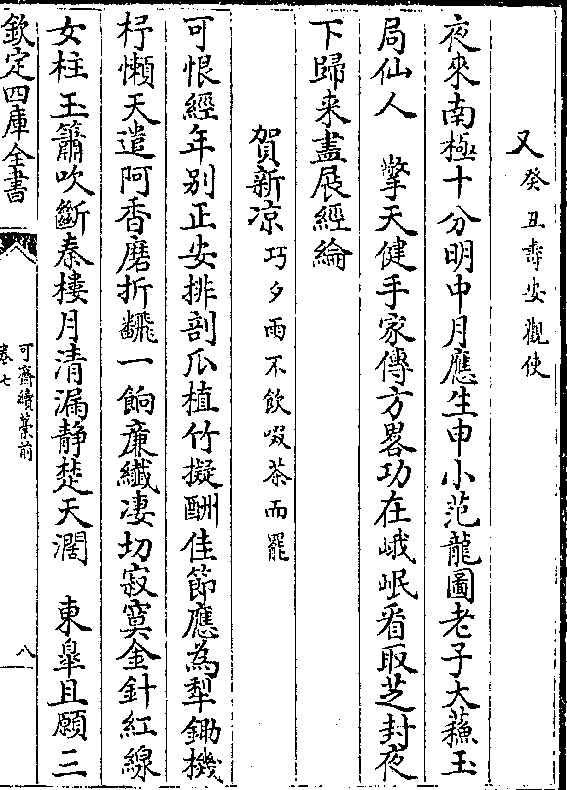 又癸丑壽安觀使
夜來南極十分明申月應生申小范龍圖老子大蘓玉
局仙人　擎天健手家傳方畧功在峨岷看取芝封夜
下歸来盡展經綸
賀新涼巧夕雨不飲啜茶而罷
可恨經年别正安排剖瓜植竹擬酬佳節應為犁鋤機
杼懶天遣阿香磨折飜一餉亷纎凄切寂寞金針紅線
女柱玉簫吹斷秦樓月清漏静楚天濶　東臯且願三
欽定四庫全書
可齋續藁前
卷七
八